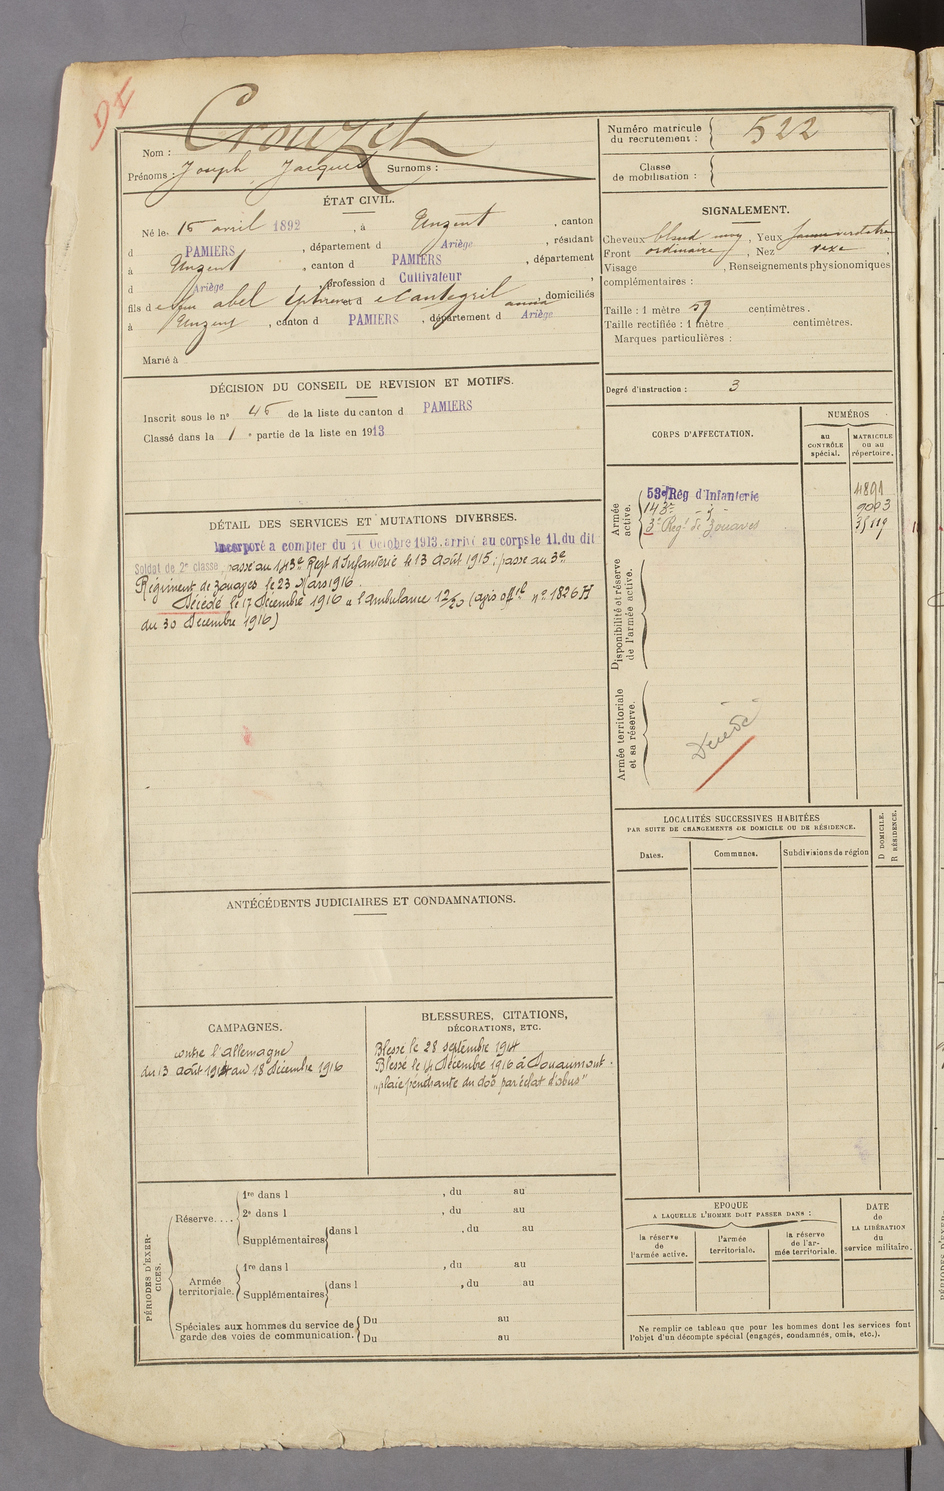 94
Nom : Crouzet
Prénoms : Joseph Jacques Surnoms :
Numéro matricule du recrutement : 522
Classe de mobilisation :
ÉTAT CIVIL.
Né le 15 avril 1892, à Unzent, canton
d PAMIERS, département d Ariège, résidant
à Unzent, canton d PAMIERS, département
d Ariège, profession d Cultivateur,
fils d e feu abel Ephrem e Cantegril anna, domiciliés
à Unzent, canton d PAMIERS, département d Ariège
Marié à
SIGNALEMENT.
Cheveux blond moy, Yeux jaune verdatre,
Front ordinaire, Nez vexe,
Visage , Renseignements physionomiques
complémentaires :
Taille : 1 mètre 59 centimètres.
Taille rectifiée : 1 mètre centimètres.
Marques particulières :
Degré d'instruction : 3
DÉCISION DU CONSEIL DE REVISION ET MOTIFS.
Inscrit sous le nº 45 de la liste du canton d PAMIERS
Classé dans la 1e partie de la liste en 1913
DÉTAIL DES SERVICES ET MUTATIONS DIVERSES.
Incorporé a compter du 10 Octobre 1913. arrivé au corps le 11. du dit
Soldat de 2e classe, passé au 143e Regt d'Infanterie le 13 Août 1915 ; passé au 3e
Régiment de zouaves le 23 Mars 1916.
Décédé le 17 Décembre 1916 a l'ambulance 12/50 (avis offel nº 1826 H
du 30 Decembre 1916)
CORPS D'AFFECTATION.
NUMÉROS
au CONTRÔLE spécial.
MATRICULE OU AU répertoire.
Armée active.
53e Rég d'Infanterie 4891
143e - ' - 9003
3e Regt de Zouaves 35119
Disponibilité et réserve de l'armée active.
Armée territoriale et sa réserve.
"Décédé"
LOCALITÉS SUCCESSIVES HABITÉES
PAR SUITE DE CHANGEMENTS DE DOMICILE OU DE RÉSIDENCE.
Dates.
Communes.
Subdivisions de région
D DOMICILE.
R RÉSIDENCE.
ANTÉCÉDENTS JUDICIAIRES ET CONDAMNATIONS.
CAMPAGNES.
contre l'allemagne
du 13 août 1914 au 18 Décembre 1916
BLESSURES, CITATIONS,
DÉCORATIONS, ETC.
Blessé le 28 septembre 1914
Blessé le 14 Décembre 1916 à Douaumont.
"plaie pénétrante du dos par éclat d'obus"
PÉRIODES D'EXERCICES.
Réserve....
1re dans l , du au
2e dans l , du au
Supplémentaires dans l , du au
Armée territoriale.
1re dans l , du au
Supplémentaires dans l , du au
Spéciales aux hommes du service de garde des voies de communication.
Du au
Du au
EPOQUE
A LAQUELLE L'HOMME DOIT PASSER DANS :
la réserve de l'armée active.
l'armée territoriale.
la réserve de l'armée territoriale.
DATE de LA LIBÉRATION du service militaire.
Ne remplir ce tableau que pour les hommes dont les services font
l'objet d'un décompte spécial (engagés, condamnés, omis, etc.).